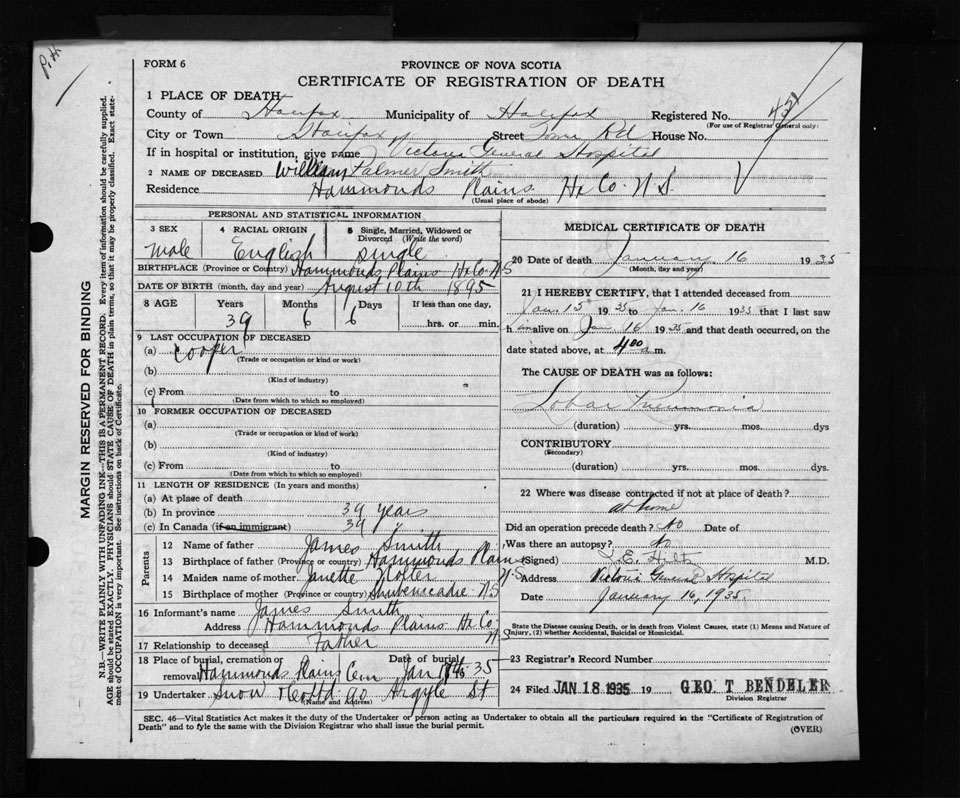 P.H.
FORM 6
PROVINCE OF NOVA SCOTIA
CERTIFICATE OF REGISTRATION OF DEATH
1 PLACE OF DEATH
County of Halifax Municipality of Halifax Registered No.
(For use of Registrar General only)
City or Town Halifax Street Tower Rd House No.
If in hospital or institution, give name Victoria General Hospital
2 NAME OF DECEASED William Palmer Smith
Residence Hammonds Plains Hx Co. N.S.
(Usual place of abode)
PERSONAL AND STATISTICAL INFORMATION
3 SEX Male
4 RACIAL ORIGIN English
5 Single, Married, Widowed or Divorced (Write the word) Single
BIRTHPLACE (Province or Country) Hammonds Plains Hx Co. N S
DATE OF BIRTH (month, day and year) August 10th 1895
8 AGE Years Months Days If less than one day,
39 6 6 hrs. or min.
9 LAST OCCUPATION OF DECEASED
(a) Cooper
(Trade or occupation or kind or work)
(b)
(Kind of industry)
(c) From to
(Date from which to which so employed)
10 FORMER OCCUPATION OF DECEASED
(a)
(Trade or occupation or kind of work)
(b)
(Kind of industry)
(c) From to
(Date from which to which so employed)
11 LENGTH OF RESIDENCE (In years and months)
(a) At place of death
(b) In province 39 years
(c) In Canada (if an immigrant) 39 y
Parents
12 Name of father James Smith
13 Birthplace of father (Province or country) Hammonds Plains N.S
14 Maiden name of mother Janette
15 Birthplace of mother (Province or country) Shubenacadie N S
16 Informant's name James Smith
Address Hammonds Plains Hx Co N S
17 Relationship to deceased Father
18 Place of burial, cremation or removal Hammonds Plains Cem Date of burial Jan 18th 35
19 Undertaker Snow & Co Ltd 90 Argyle St
(Name and Address)
MEDICAL CERTIFICATE OF DEATH
20 Date of death January 16 1935
(Month, day and year)
21 I HEREBY CERTIFY, that I attended deceased from
Jan. 15 1935 to Jan. 16 1935 that I last saw
h im alive on Jan. 16 1935 and that death occurred, on the
date stated above, at 4 00 a m.
The CAUSE OF DEATH was as follows:
Lobar Pneumonia
(duration) yrs. mos. dys
CONTRIBUTORY
(Secondary)
(duration) yrs. mos. dys.
22 Where was disease contracted if not at place of death?
at home
Did an operation precede death? No Date of
Was there an autopsy? No
(Signed) M.D.
Address Victoria General Hospital
Date January 16, 1935.
State the Disease causing Death, or in death from Violent Causes, state (1) Means and Nature of Injury, (2) whether Accidental, Suicidal or Homicidal.
23 Registrar's Record Number
24 Filed JAN 18 1935 19 GEO T BENDELER
Division Registrar
SEC. 46—Vital Statistics Act makes it the duty of the Undertaker or person acting as Undertaker to obtain all the particulars required in the "Certificate of Registration of
Death" and to fyle the same with the Division Registrar who shall issue the burial permit.
(OVER)
MARGIN RESERVED FOR BINDING
N.B.—WRITE PLAINLY WITH UNFADING INK—THIS IS A PERMANENT RECORD. Every item of information should be carefully supplied.
AGE should be stated EXACTLY. PHYSICIANS should STATE CAUSE OF DEATH in plain terms, so that it may be properly classified. Exact state-
ment of OCCUPATION is very important. See instructions on back of Certificate.